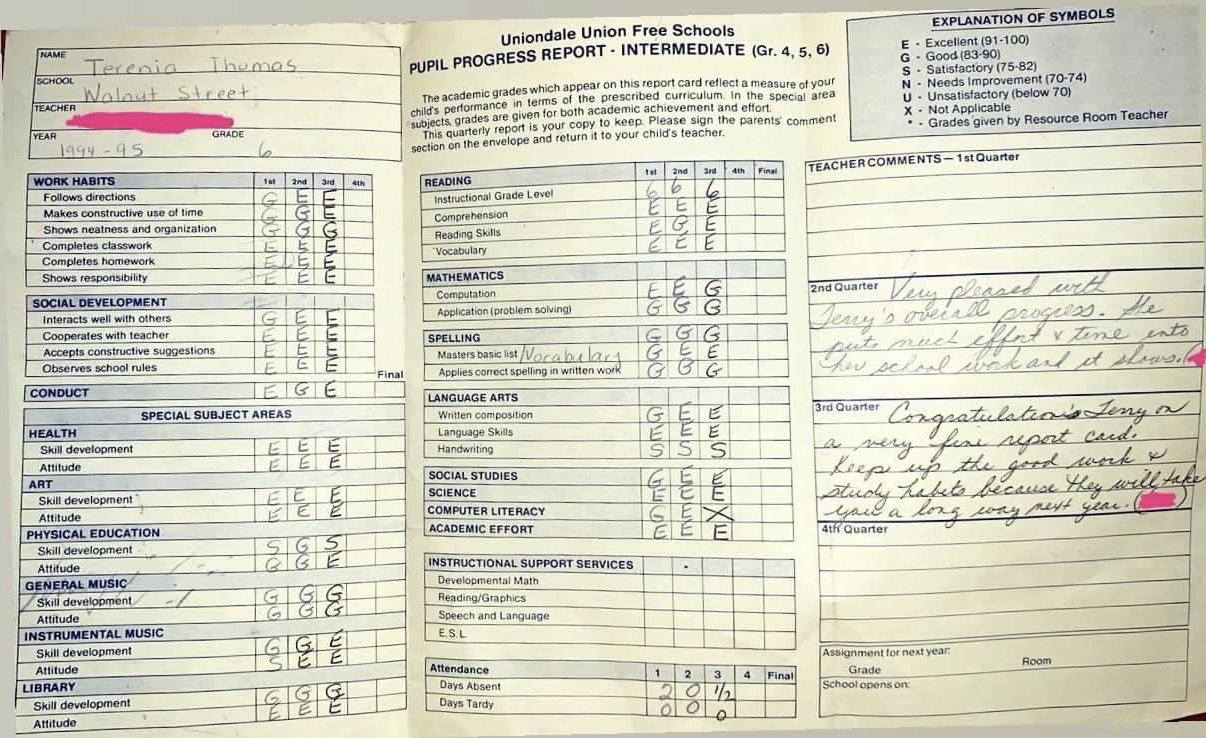 NAME Terenia Thomas
SCHOOL Walnut Street
TEACHER
YEAR 1994-95 GRADE 6
WORK HABITS 1st 2nd 3rd 4th
Follows directions G E E
Makes constructive use of time G G E
Shows neatness and organization G G G
Completes classwork E E E
Completes homework E E E
Shows responsibility E E E
SOCIAL DEVELOPMENT
Interacts well with others G E E
Cooperates with teacher E E E
Accepts constructive suggestions E E E
Observes school rules E E E
Final
CONDUCT E G E
SPECIAL SUBJECT AREAS
HEALTH
Skill development E E E
Attitude E E E
ART
Skill development E E E
Attitude E E E
PHYSICAL EDUCATION
Skill development S G S
Attitude G G E
GENERAL MUSIC
Skill development G G G
Attitude G G G
INSTRUMENTAL MUSIC
Skill development G G E
Attitude S E E
LIBRARY
Skill development G G G
Attitude E E E
Uniondale Union Free Schools
PUPIL PROGRESS REPORT - INTERMEDIATE (Gr. 4, 5, 6)
The academic grades which appear on this report card reflect a measure of your
child's performance in terms of the prescribed curriculum. In the special area
subjects, grades are given for both academic achievement and effort.
This quarterly report is your copy to keep. Please sign the parents' comment
section on the envelope and return it to your child's teacher.
READING 1st 2nd 3rd 4th Final
Instructional Grade Level 6 6 6
Comprehension E E E
Reading Skills E G E
Vocabulary E E E
MATHEMATICS
Computation E E G
Application (problem solving) G G G
SPELLING G G G
Masters basic list/Vocabulary G E E
Applies correct spelling in written work G G G
LANGUAGE ARTS
Written composition G E E
Language Skills E E E
Handwriting S S S
SOCIAL STUDIES G E E
SCIENCE E E E
COMPUTER LITERACY G E X
ACADEMIC EFFORT E E E
INSTRUCTIONAL SUPPORT SERVICES
Developmental Math
Reading/Graphics
Speech and Language
E.S.L
Attendance 1 2 3 4 Final
Days Absent 2 0 1/2
Days Tardy 0 0 0
EXPLANATION OF SYMBOLS
E - Excellent (91-100)
G - Good (83-90)
S - Satisfactory (75-82)
N - Needs Improvement (70-74)
U - Unsatisfactory (below 70)
X - Not Applicable
* - Grades given by Resource Room Teacher
TEACHER COMMENTS — 1st Quarter
2nd Quarter Very pleased with
Terry's overall progress. She
puts much effort & time into
her school work and it shows.
3rd Quarter Congratulations Terry on
a very fine report card.
Keep up the good work &
study habits because they will take
you a long way next year.
4th Quarter
Assignment for next year:
Grade Room
School opens on: